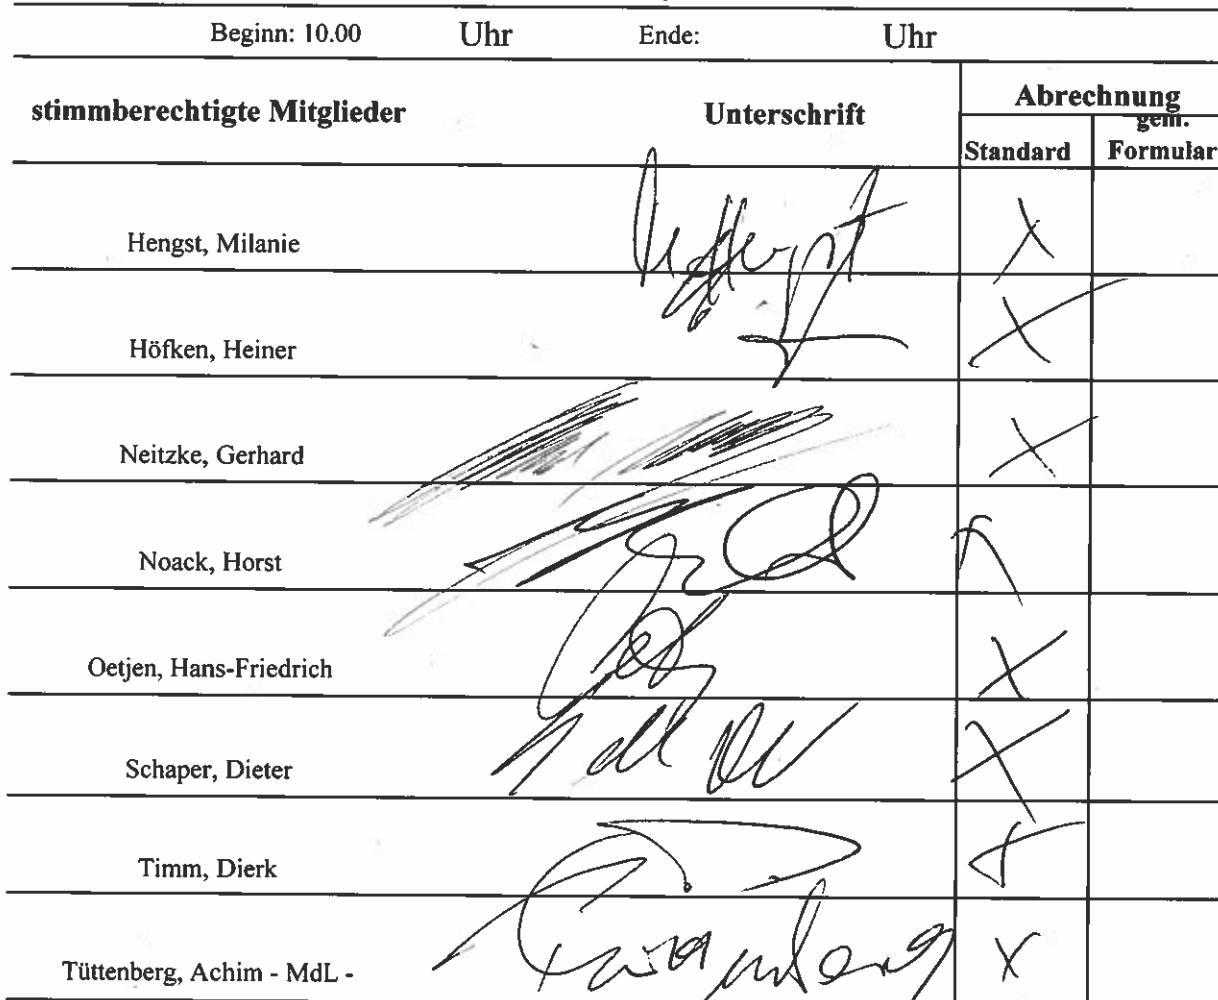 Beginn: 10.00 Uhr Ende: Uhr
stimmberechtigte Mitglieder Unterschrift Abrechnung
gem.
Standard Formular
Hengst, Milanie
Höfken, Heiner
Neitzke, Gerhard
Noack, Horst
Oetjen, Hans-Friedrich
Schaper, Dieter
Timm, Dierk
Tüttenberg, Achim - MdL -